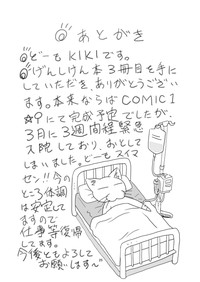 あとがき
どーもKIKIです。
げんしけん本3冊目を手に
していただき、ありがとうござい
ます。本来ならばCOMIC1
☆9にて完成予定でしたが、
3月に3週間程緊急
入院しており、おとして
しまいました。どーもスイマ
セン!!今の
ところ体調
は安定して
ますので
仕事等復帰
してます。
今後ともよろしく
お願いします〜